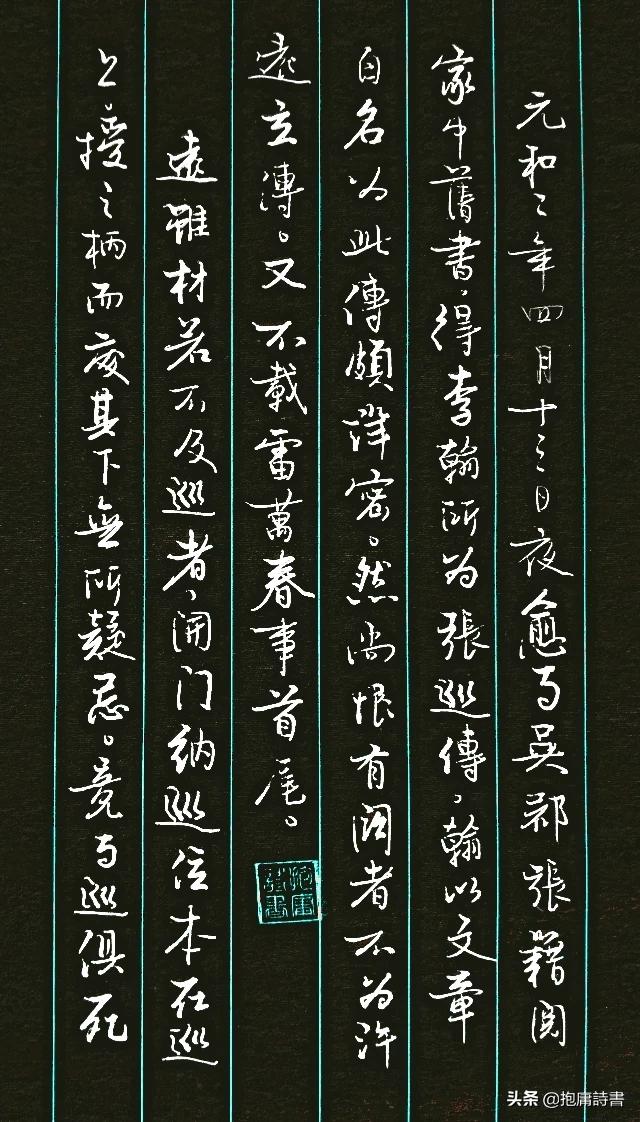 元和二年四月十三日夜愈与吳郡張籍閱
家中舊書、得李翰所为張巡傳、翰以文章
自名为此傳頗詳密。然尚恨有闕者不为許
遠立傳。又不載雷萬春事首尾。
遠雖材若不及巡者、開门納巡位本在巡
上。授之柄而處其下無所疑忌。竟与巡俱死
头条 @抱庸詩書